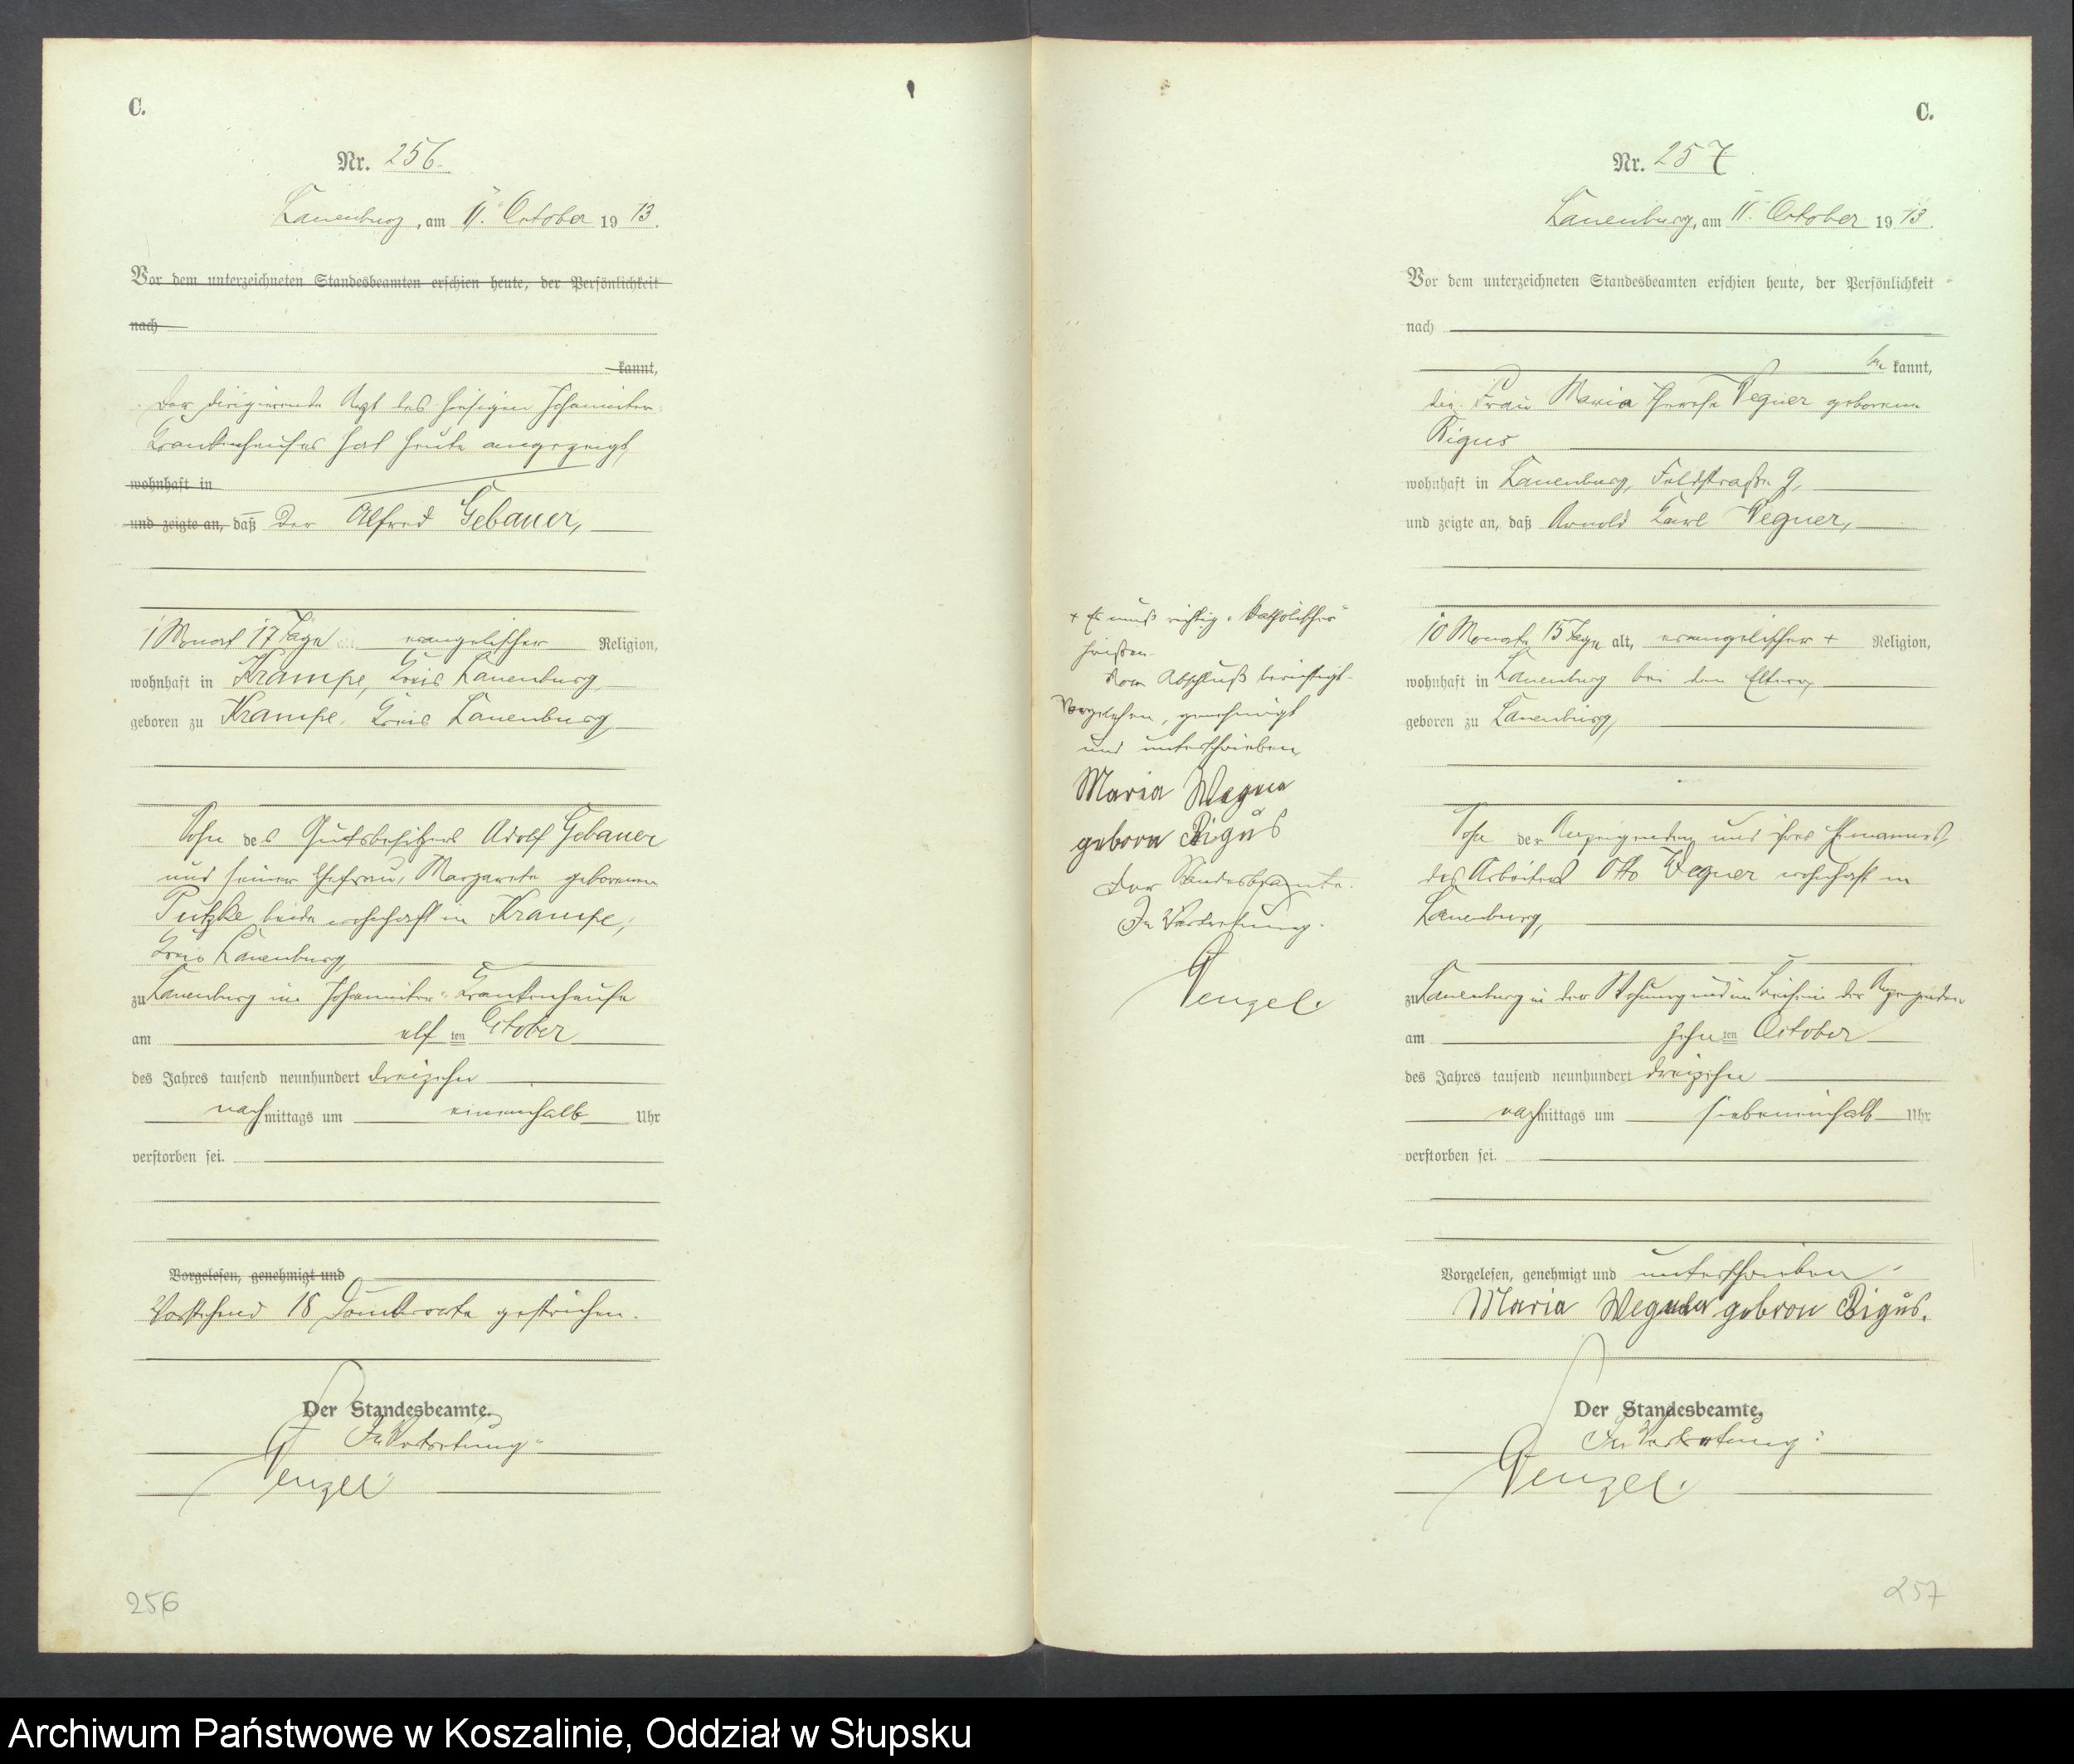 C.
Nr. 256.
Lauenburg, am 11. October 1913.
Vor dem unterzeichneten Standesbeamten erschien heute, der Persönlichkeit
nach
kannt,
Der dirigierende Arzt des hiesigen Johanniter-
Krankenhauses hat heute angezeigt,
wohnhaft in
und zeigte an, daß der Alfred Gebauer,
1 Monat 17 Tage alt, evangelischer Religion,
wohnhaft in Krampe, Kreis Lauenburg,
geboren zu Krampe, Kreis Lauenburg,
Sohn des Gutsbesitzers Adolf Gebauer
und seiner Ehefrau, Margarete geborenen
Putzke beide wohnhaft in Krampe,
Kreis Lauenburg,
zu Lauenburg im Johanniter-Krankenhause
am elften October
des Jahres tausend neunhundert dreizehn
nachmittags um eineinhalb Uhr
verstorben sei.
Vorgelesen, genehmigt und
Vorstehend 18 Druckworte gestrichen.
Der Standesbeamte.
In Vertretung:
Wenzel.
256
C.
Nr. 257
Lauenburg, am 11. October 1913.
Vor dem unterzeichneten Standesbeamten erschien heute, der Persönlichkeit
nach
be kannt,
die Frau Maria Therese Wegner geborene
Bigus
wohnhaft in Lauenburg, Feldstraße 9,
und zeigte an, daß Arnold Karl Wegner,
10 Monate 15 Tage alt, evangelischer + Religion,
wohnhaft in Lauenburg bei den Eltern,
geboren zu Lauenburg,
Sohn der Anzeigenden und ihres Ehemannes,
des Arbeiters Otto Wegner wohnhaft in
Lauenburg,
zu Lauenburg in der Wohnung und im Beisein der Anzeigenden
am zehnten October
des Jahres tausend neunhundert dreizehn
nachmittags um siebeneinhalb Uhr
verstorben sei.
Vorgelesen, genehmigt und unterschrieben.
Maria Wegner geboren Bigus.
Der Standesbeamte.
In Vertretung:
Wenzel.
+ Es muß richtig "katholischer"
heißen.
Vor Abschluß berichtigt.
Vorgelesen, genehmigt
und unterschrieben
Maria Wegner
geboren Bigus
Der Standesbeamte.
In Vertretung.
Wenzel.
257
Archiwum Państwowe w Koszalinie, Oddział w Słupsku